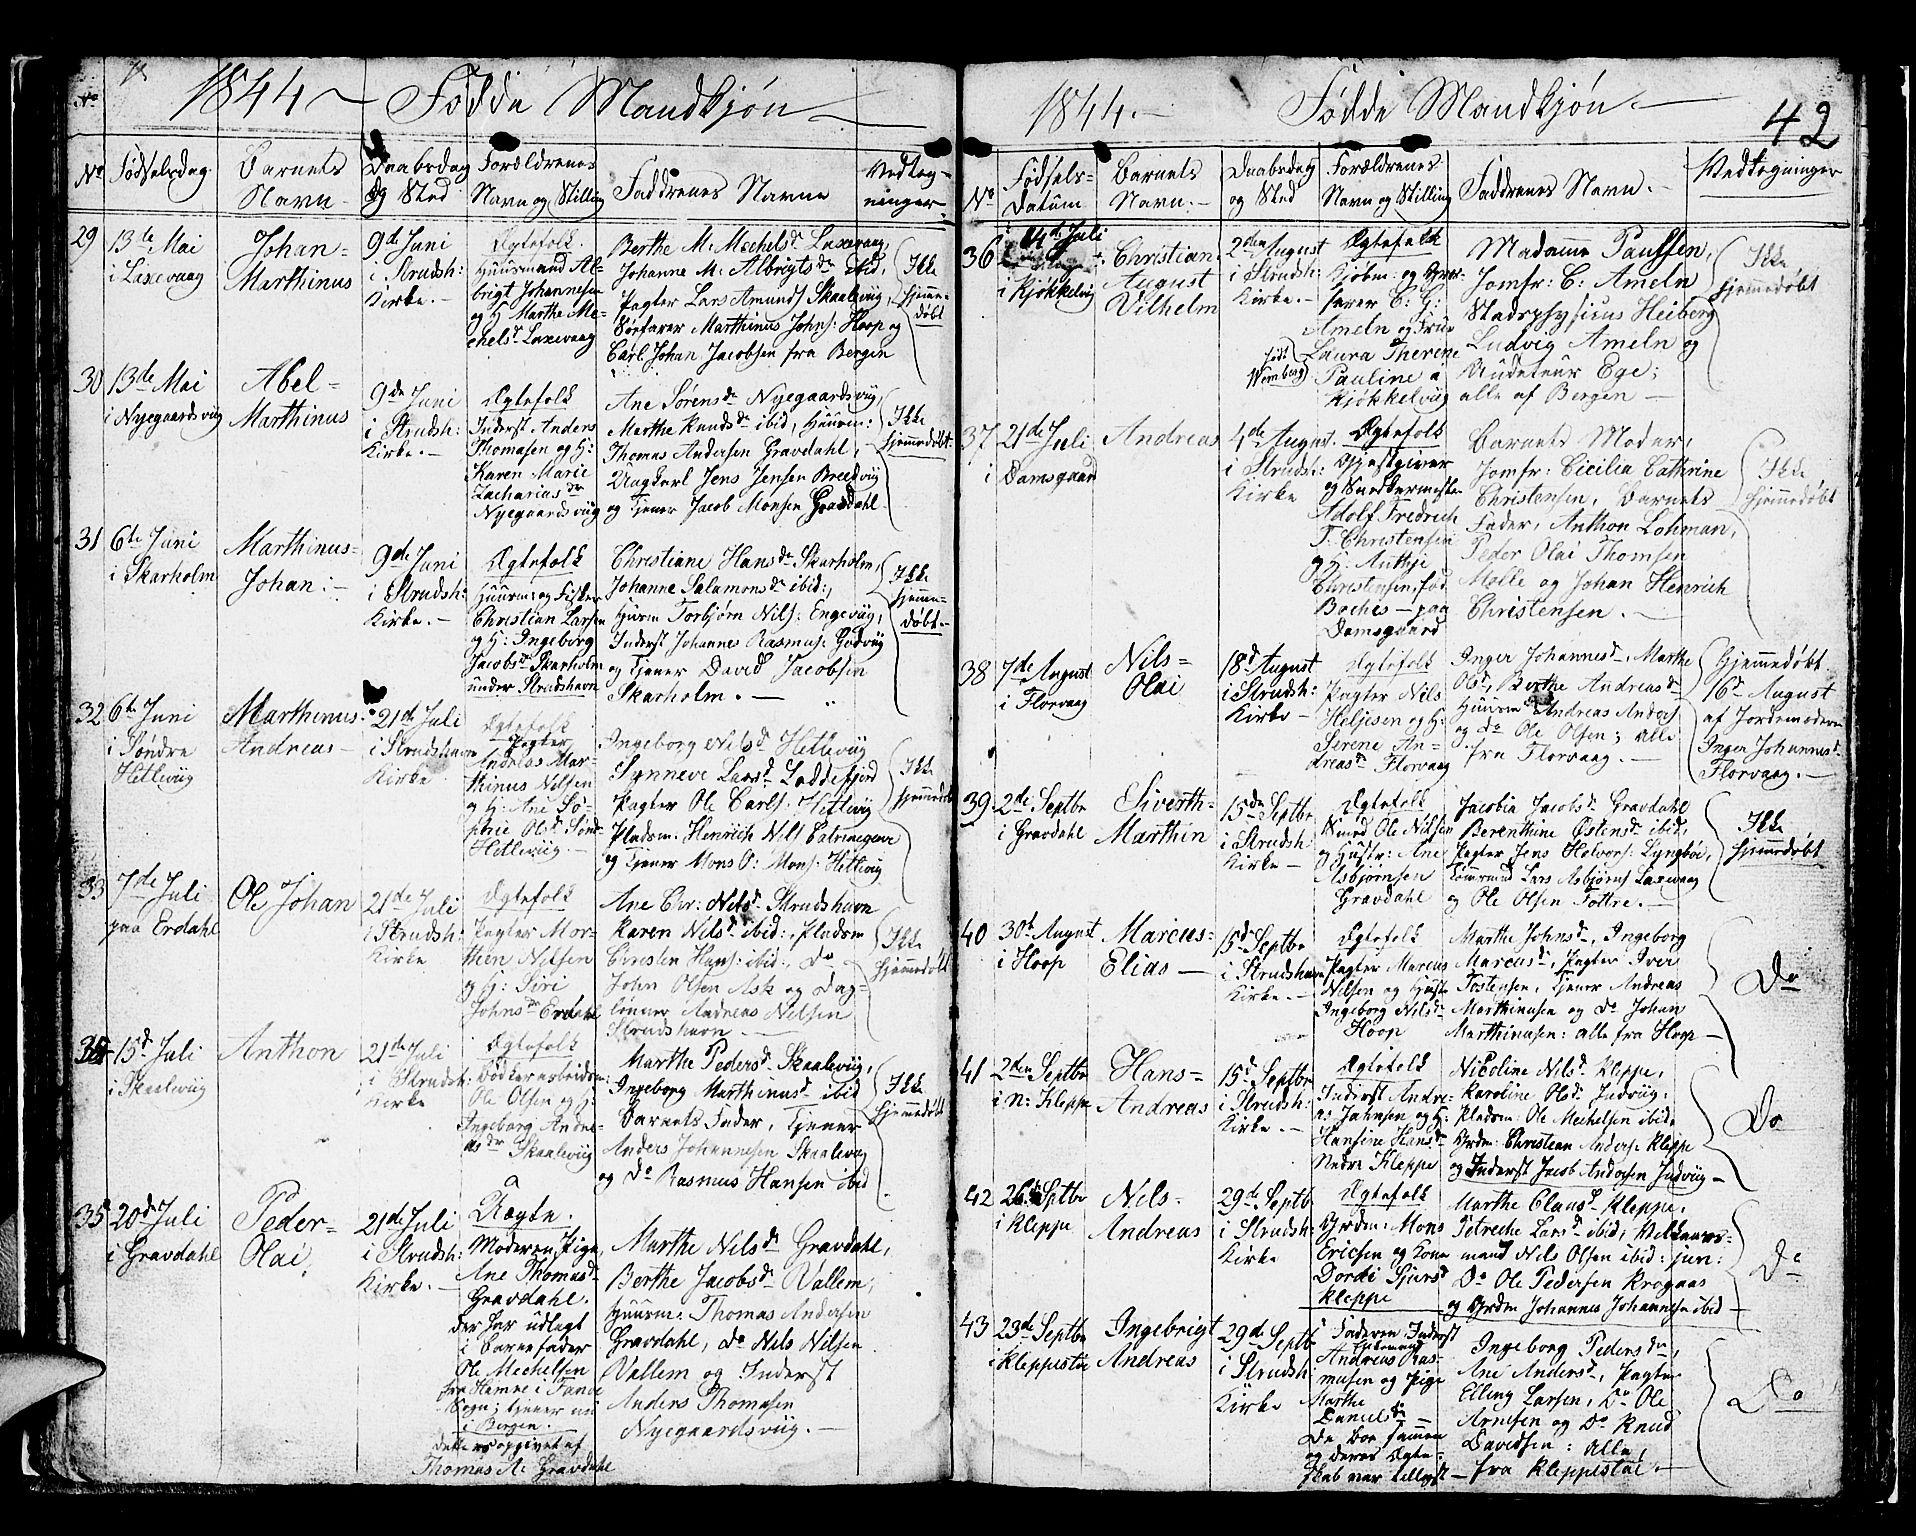 1844 Fødde Mandkjøn
No Fødselsdag Barnets Navn Daabsdag og Sted Forældrenes Navn og Stilling Faddrenes Navne Vedtegninger
29
13de Mai
i Laxevaag
Johan=
Marthinus
9de Juni
i Strudsh:
Kirke.
Ægtefolk
Huusmand Al-
brigt Johannesen
og H: Marthe Me-
chelsdr Laxevaag
Berthe M. Mechelsdr Laxevaag,
Johanne M. Albrigtsdr ibid,
Pagter Lars Amunds Skaalevig,
Søefarer Marthinus Johns: Hoop og
Carl Johan Jacobsen fra Bergen
Ikke
hjemme-
døbt
30
13de Mai
i Nyegaardsviig
Abel=
Marthinus
9de Juni
i Strudsh:
Kirke.
Ægtefolk
Inderst Anders
Thomasen og H:
Karen Marie
Zachariasdr
Nyegaardsviig
Ane Sørensdr Nyegaardsviig,
Marthe Knudsdr ibid, Huusm:
Thomas Andersen Gravdahl,
Ungkarl Jens Jensen Breedviig
og Tjener Jacob Monsen Gravdahl.
Ikke
hjemmedøbt
31
6te Juni
i Skarholm
Marthinus=
Johan
9de Juni
i Strudsh:
Kirke.
Ægtefolk
Huusm: og Fisker
Christian Larsen
og H: Ingeborg
Jacobsdr Skarholm
under Strudshavn
Christiane Hansdr Skarholm,
Johanne Salamonsdr ibid:,
Huusm Torbjørn Nils: Engeviig,
Inderst Johannes Rasmus: Gudviig
og Tjener David Jacobsen
Skarholm.
Ikke
hjemme-
døbt.
32
6te Juni
i Søndre
Hetleviig
Marthinus
Andreas
21de Juli
i Strudshavn
Kirke
Ægtefolk
Pagter
Andreas Mar-
thinus Nilsen
og H: Ane So-
phie Olsdr Sønd:
Hetleviig
Ingeborg Nilsdr Hetleviig
Synneve Larsdr Loddefjord
Pagter Ole Carls: Hetleviig
Pladsm: Henrich Nils
og Tjener Mons O: Mons: Hetleviig
Ikke
hjemmedøbt
33
7de Juli
paa Erdahl
Ole Johan
21de Juli
i Strudsh:
Kirke
Ægtefolk
Pagter Mor-
then Nilsen
og H: Siri
Johnsdr Erdahl
Ane Chr: Nilsdr Strudshavn
Karen Nilsdr ibid:, Pladsm
Christen Hans: ibid: Do
John Olsen Ask og Dag-
lønner Andreas Nilsen
Strudshavn
Ikke
hjemmedøbt
34
15de Juli
i Skaaleviig
Anthon
21de Juli
i Strudsh:
Kirke
Ægtefolk
Bødkerarbeidsm
Ole Olsen og H:
Ingeborg Andre-
asdr Skaaleviig
Marthe Pedersdr Skaaleviig,
Ingeborg Marthinusdr ibid
Barnets Fader, Tjener
Anders Johannesen Skaaleviig
og Do Rasmus Hansen ibid
Ikke
hjemmedøbt
35
20de Juli
i Gravdahl
Peder=
Olai
21de Juli
i Strudsh:
Kirke.
Uægte.
Moderen, Pige
Ane Thomasdr
Gravdahl.
der har udlagt
i Barnefader
Ole Mechelsen
fra Hamre i Fane
Sogn; tjener nu
i Bergen.
dette er opgivet af
Thomas A: Gravdahl
Marthe Nilsdr Gravdahl,
Berthe Jacobsdr Vallem,
Huusm: Thomas Andersen
Gravdahl, Do Nils Nilsen
Vallem og Inderst
Anders Thomasen
Nyegaardsviig.
1844. Fødde Mandkjøn. 42
No Fødsels-Datum Barnets Navn. Daabsdag og Sted Forældrenes Navn og Stilling Faddrenes Navn. Vedtegninger
36
4de Juli
i Kjøkkelvig
Christian
August
Vilhelm
2den August
i Strudsh:
Kirke.
Ægtefolk
Kjøbm: og
E: G:
Ameln og Frue
Laura Therese
Pauline
Kjøkkelviig
Madame Paulsen,
Jomfr: C: Ameln
Stadsphysicus Heiberg
Ludvig Ameln og
Auditeur Ege;
alle af Bergen
Ikke
hjemmedøbt
37
21de Juli
i
Damsgaard
Andreas
4de August.
i Strudsh:
Kirke
Ægtefolk
Gjæstgiver
og Snedkermester
Adolf Fredrich
T. Christensen
og H: Anthje
Christensen, fød
Boches paa
Damsgaard
Barnets Moder,
Jomfr: Cicilia Cathrine
Christensen, Barnets
Fader, Anthon Lohman,
Peder Olai Thomsen
Molle og Johan Henrich
Christensen.
Ikke
hjemmedøbt
38
7de August
i Florvaag
Nils=
Olai
18de August
i Strudsh:
Kirke
Ægtefolk
Pagter Nils
Heljesen og H:
Serene An-
dreasdr Florvaag
Inger Johannesdr, Marthe
Olsdr, Berthe Andreasdr
Huusm Andreas Anders
og Do Ole Olsen; alle
fra Florvaag.
Hjemmedøbt
16de August
af Jordemoderen
Inger Johannesdr
Florvaag.
39
2de Septbr
i Gravdahl
Siverth=
Marthin
15de Septbr
i Strudsh
Kirke
Ægtefolk
Smed Ole Nilsen
og Hustr: Ane
Asbjørnsen
Gravdahl
Jacobia Jacobsdr Gravdahl
Berenthine Østensdr ibid,
Pagter Jens Halvors: Lyngbøe,
Tømmermand Lars Asbjørns Laxevaag
og Ole Olsen Tottre.
Ikke
hjemmedøbt
40
30te August
i Hoop
Marcus=
Elias
15de Septbr
i Strudshavn
Kirke.
Ægtefolk
Pagter Marcus
Nilsen og Hustr
Ingeborg Nilsdr
Hoop
Marthe Johnsdr, Ingeborg
Marcusdr, Pagter Iver
Tostensen, Tjener Andreas
Marthinusen og Do Johan
Marthinusen: alle fra Hoop
Do
41
2den Septbr
i N: Kleppe
Hans=
Andreas
15de Septbr
i Strudsh:
Kirke.
Ægtefolk
Inderst Andre-
as Jahnsen og H:
Hansine Hansdr
Nedre Kleppe
Nicoline Nilsdr Kleppe,
Karoline Olsdr Judviig,
Pladsm: Ole Mechelsen ibid,
Grdm: Christian Anders: Kleppe
og Inderst Jacob Andersen Judviig
Do
42
26de Septbr
i Kleppe
Nils=
Andreas
29de Septb
i Strudsh:
Kirke
Ægtefolk
Grdm: Mons
Ericsen og Kone
Dordi Sjursdr
Kleppe
Marthe Clausdr Kleppe,
Petreche Larsdr ibid,
mand Nils Olsen ibid: jun:
Do Ole Pedersen Krogaas
og Grdm Johannes Johannesen ibid
Do
43
23de Septbr
i Kleppestøe
Ingebrigt
Andreas
29de Septbr
i Strudsh
Kirke
Faderen, Inderst
Enkemand
Andreas Ras-
musen og Pige
Marthe
Danielsdr
De boe sammen
og deres Ægte-
skab var tillyst
Ingeborg Pedersdr,
Ane Andersdr, Pagter
Elling Larsen, Do Ole
Arnesen og Do Knud
Davidsen: alle
fra Kleppestøe.
Do